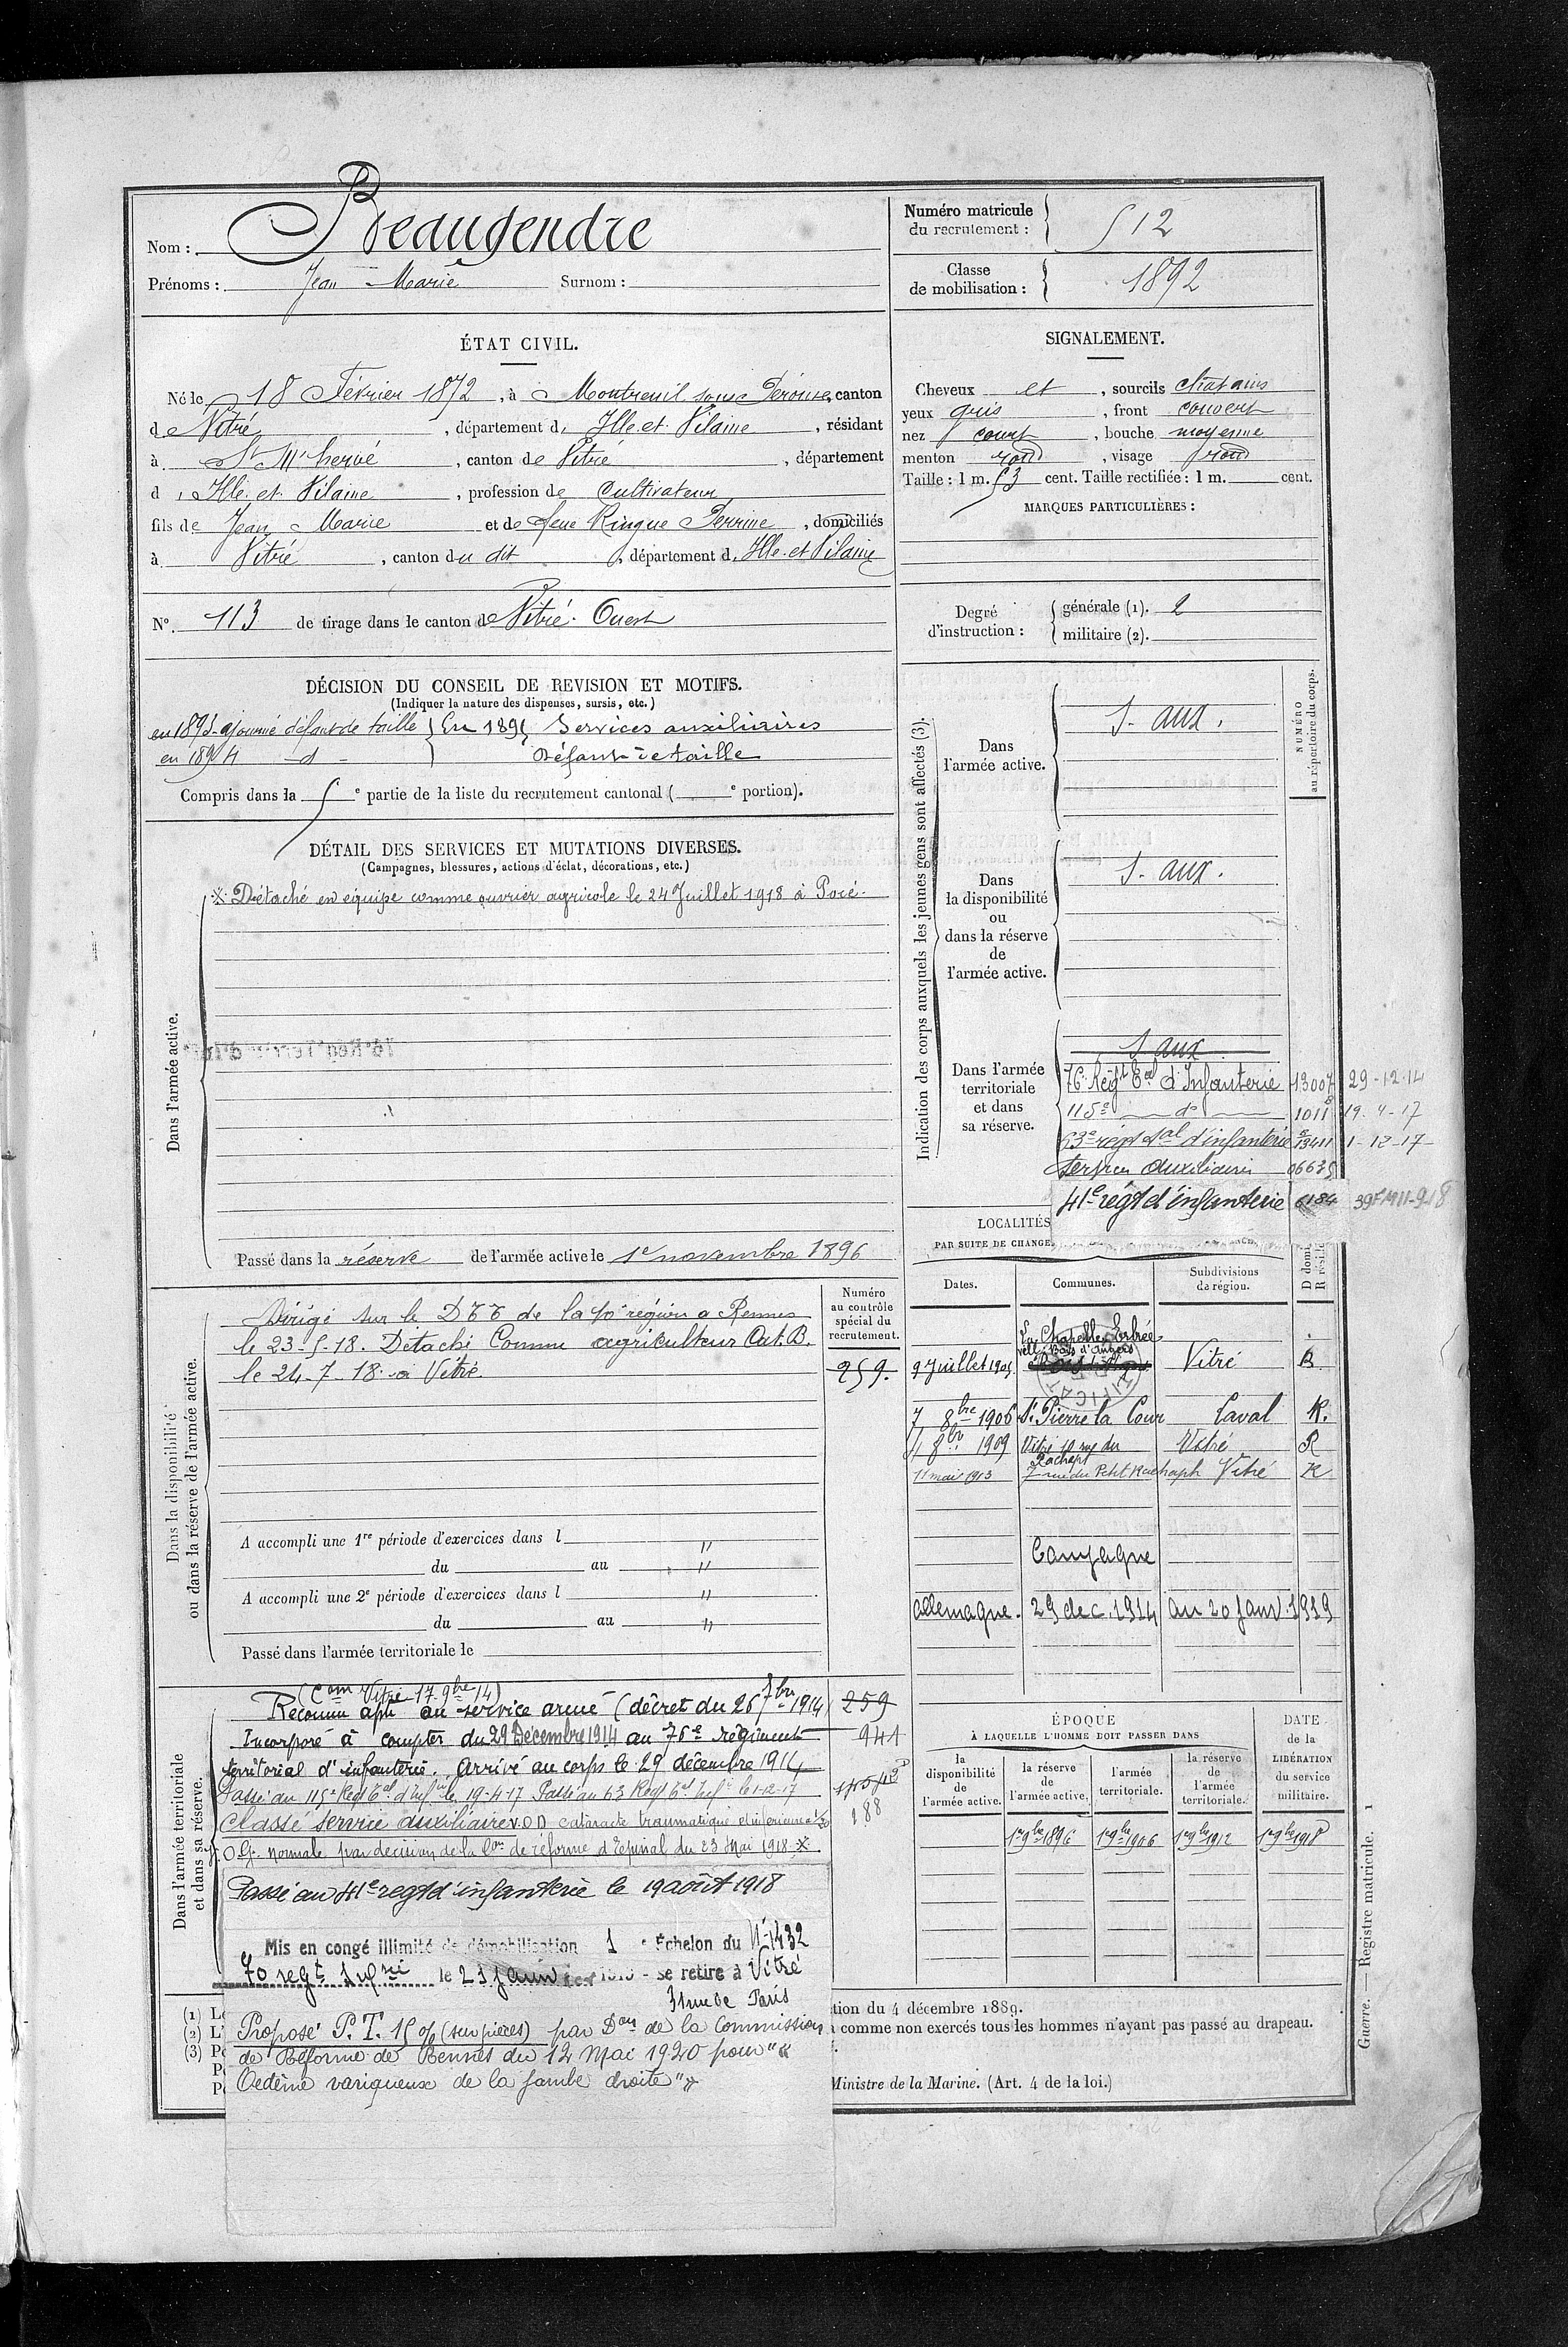 Nom : Beaugendre
Prénoms : Jean Marie Surnom :
Numéro matricule du recrutement : 512
Classe de mobilisation : 1892
ÉTAT CIVIL.
Né le 18 Février 1872, à Montreuil sous Pérouse, canton
de Vitré, département d'Ille et Vilaine, résidant
à St M'hervé, canton de Vitré, département
d'Ille et Vilaine, profession de Cultivateur
fils de Jean Marie et de feue Ringue Perrine, domiciliés
à Vitré, canton du dit, département d'Ille et Vilaine
N° 113 de tirage dans le canton de Vitré-Ouest
SIGNALEMENT.
Cheveux et, sourcils chatains
yeux gris, front couvert
nez court, bouche moyenne
menton rond, visage rond
Taille : 1 m. 53 cent. Taille rectifiée : 1 m. cent.
MARQUES PARTICULIÈRES :
Degré d'instruction : générale (1). 2
militaire (2).
DÉCISION DU CONSEIL DE REVISION ET MOTIFS.
(Indiquer la nature des dispenses, sursis, etc.)
en 1893 ajourné défaut de taille } En 1895 Services auxiliaires
en 1894 -d- } Défaut de taille
Compris dans la 5e partie de la liste du recrutement cantonal ( e portion).
DÉTAIL DES SERVICES ET MUTATIONS DIVERSES.
(Campagnes, blessures, actions d'éclat, décorations, etc.)
Dans l'armée active.
※ Détaché en équipe comme ouvrier agricole le 24 Juillet 1918 à Pocé.
Passé dans la réserve de l'armée active le 1e novembre 1896
Indication des corps auxquels les jeunes gens sont affectés (3).
NUMÉRO au répertoire du corps.
Dans l'armée active. S. aux.
Dans la disponibilité ou dans la réserve de l'armée active. S. aux.
Dans l'armée territoriale et dans sa réserve.
S aux
76e Régt Tal d'Infanterie 13007 29-12-14
115e do 1011 19-4-17
63e régt tal d'infanterie 13411 1-12-17
Service Auxiliaire 06635
41e régt d'infanterie 6184
LOCALITÉS
PAR SUITE DE CHANGE
Dates. Communes. Subdivisions de région. D domi. R résid.
La Chapelle Erbrée
vill. Bois d'Angers
9 Juillet 1905 Vitré R
7 8bre 1906 St Pierre la Cour Laval R.
8bre 1909 Vitré 10 rue du Rachapt Vitré R
11 mai 1913 7 rue du Petit Rachapt Vitré R
Campagne
Allemagne. 29 dec. 1914 au 20 Janv. 1919
Dans la disponibilité ou dans la réserve de l'armée active.
Numéro au contrôle spécial du recrutement.
259.
Dirigé sur le DTT de la 10e région a Rennes
le 23-5-18. Detaché Comme agriculteur Cat. B.
le 24-7-18 a Vitré.
A accompli une 1re période d'exercices dans l "
du au "
A accompli une 2e période d'exercices dans l "
du au "
Passé dans l'armée territoriale le
Dans l'armée territoriale et dans sa réserve.
(Com Vitré 17 9bre 14)
Reconnu apte au service armé (décret du 26 7bre 1914) 259
Incorporé à compter du 29 Décembre 1914 au 76e régiment 941
territorial d'infanterie. Arrivé au corps le 29 décembre 1914
Passé au 115e Regt Tal d'Infie le 19-4-17 Passé au 63 Regt Tal Infie le 1-12-17
188
Classé service auxiliaire V.O.D cataracte traumatique et inférieure à 1/20
V.O.G. normale par décision de la Con de réforme d'Epinal du 23 Mai 1918 ※
Passé au 41e regt d'infanterie le 19 août 1918
Mis en congé illimité de démobilisation 1e Echelon du N° 1432
70 regt Infrie le 21 Janvier 1919 - se retire à Vitré
31 rue de Paris
Proposé P.T. 15% (sur pièces) par Don de la Commission
de Réforme de Rennes du 12 Mai 1920 pour "
Oedème variqueux de la jambe droite"
ÉPOQUE À LAQUELLE L'HOMME DOIT PASSER DANS
la disponibilité de l'armée active.
la réserve de l'armée active. 1er 9bre 1896
l'armée territoriale. 1er 9bre 1906
la réserve de l'armée territoriale. 1er 9bre 1912
DATE de la LIBÉRATION du service militaire. 1er 9bre 1918
(1) Le
(2) L'
(3) Po
tion du 4 décembre 1889.
comme non exercés tous les hommes n'ayant pas passé au drapeau.
Ministre de la Marine. (Art. 4 de la loi.)
Guerre. — Registre matricule. 1